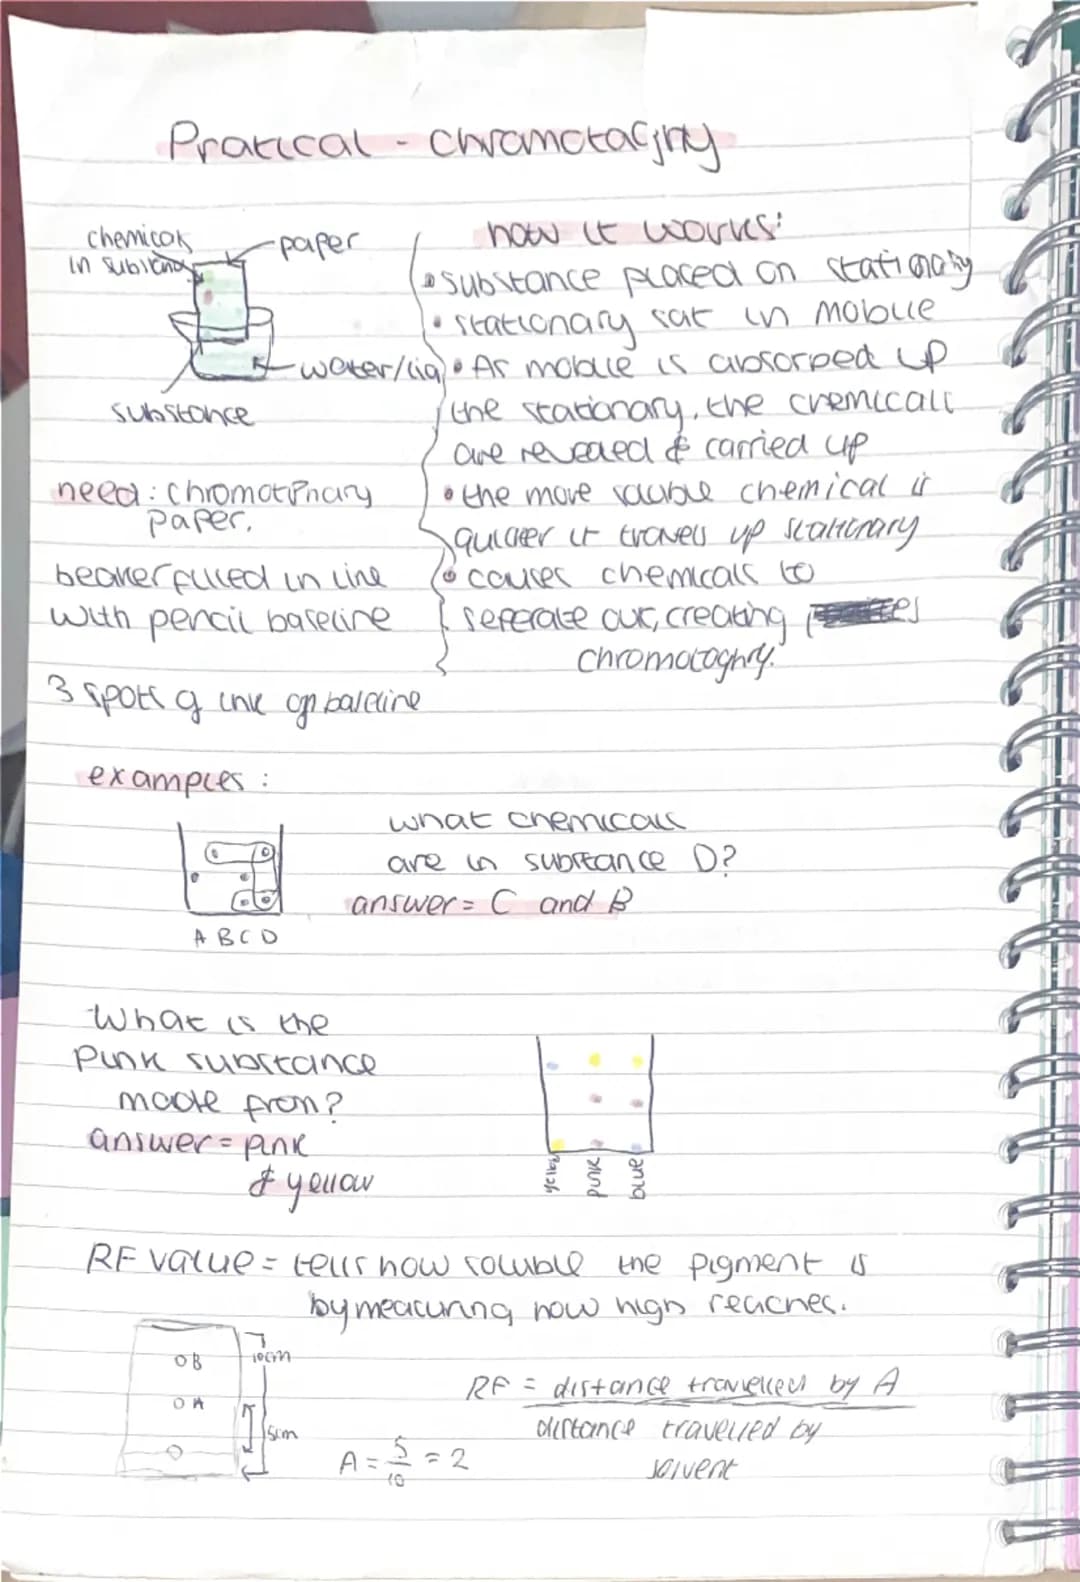 Pratical - Chromotagrhy
chemicals
in substance
paper
water/liq
substance
how it works:
• substance placed on stationary
• stationary sat in mobile
• As mobile is absorped up
the stationary, the chemicals
are revealed & carried up
• the more soluble chemical is
quicker it travels up stationary
• causes chemicals to
seperate out, creating
chromotoghry.
need: chromotphary
paper.
beaker filled in line
with pencil baseline
3 spots of ink on baseline
examples:
A B C D
what chemicals
are in substance D?
answer = C and B
What is the
Pink substance
made from?
answer = pink
& yellow
yellow
pink
blue
RF value = tells how soluble the pigment is
by measuring how high reaches.
B
A
10cm
5cm
A = 5/10 = 2
RF = distance travelled by A
distance travelled by
solvent